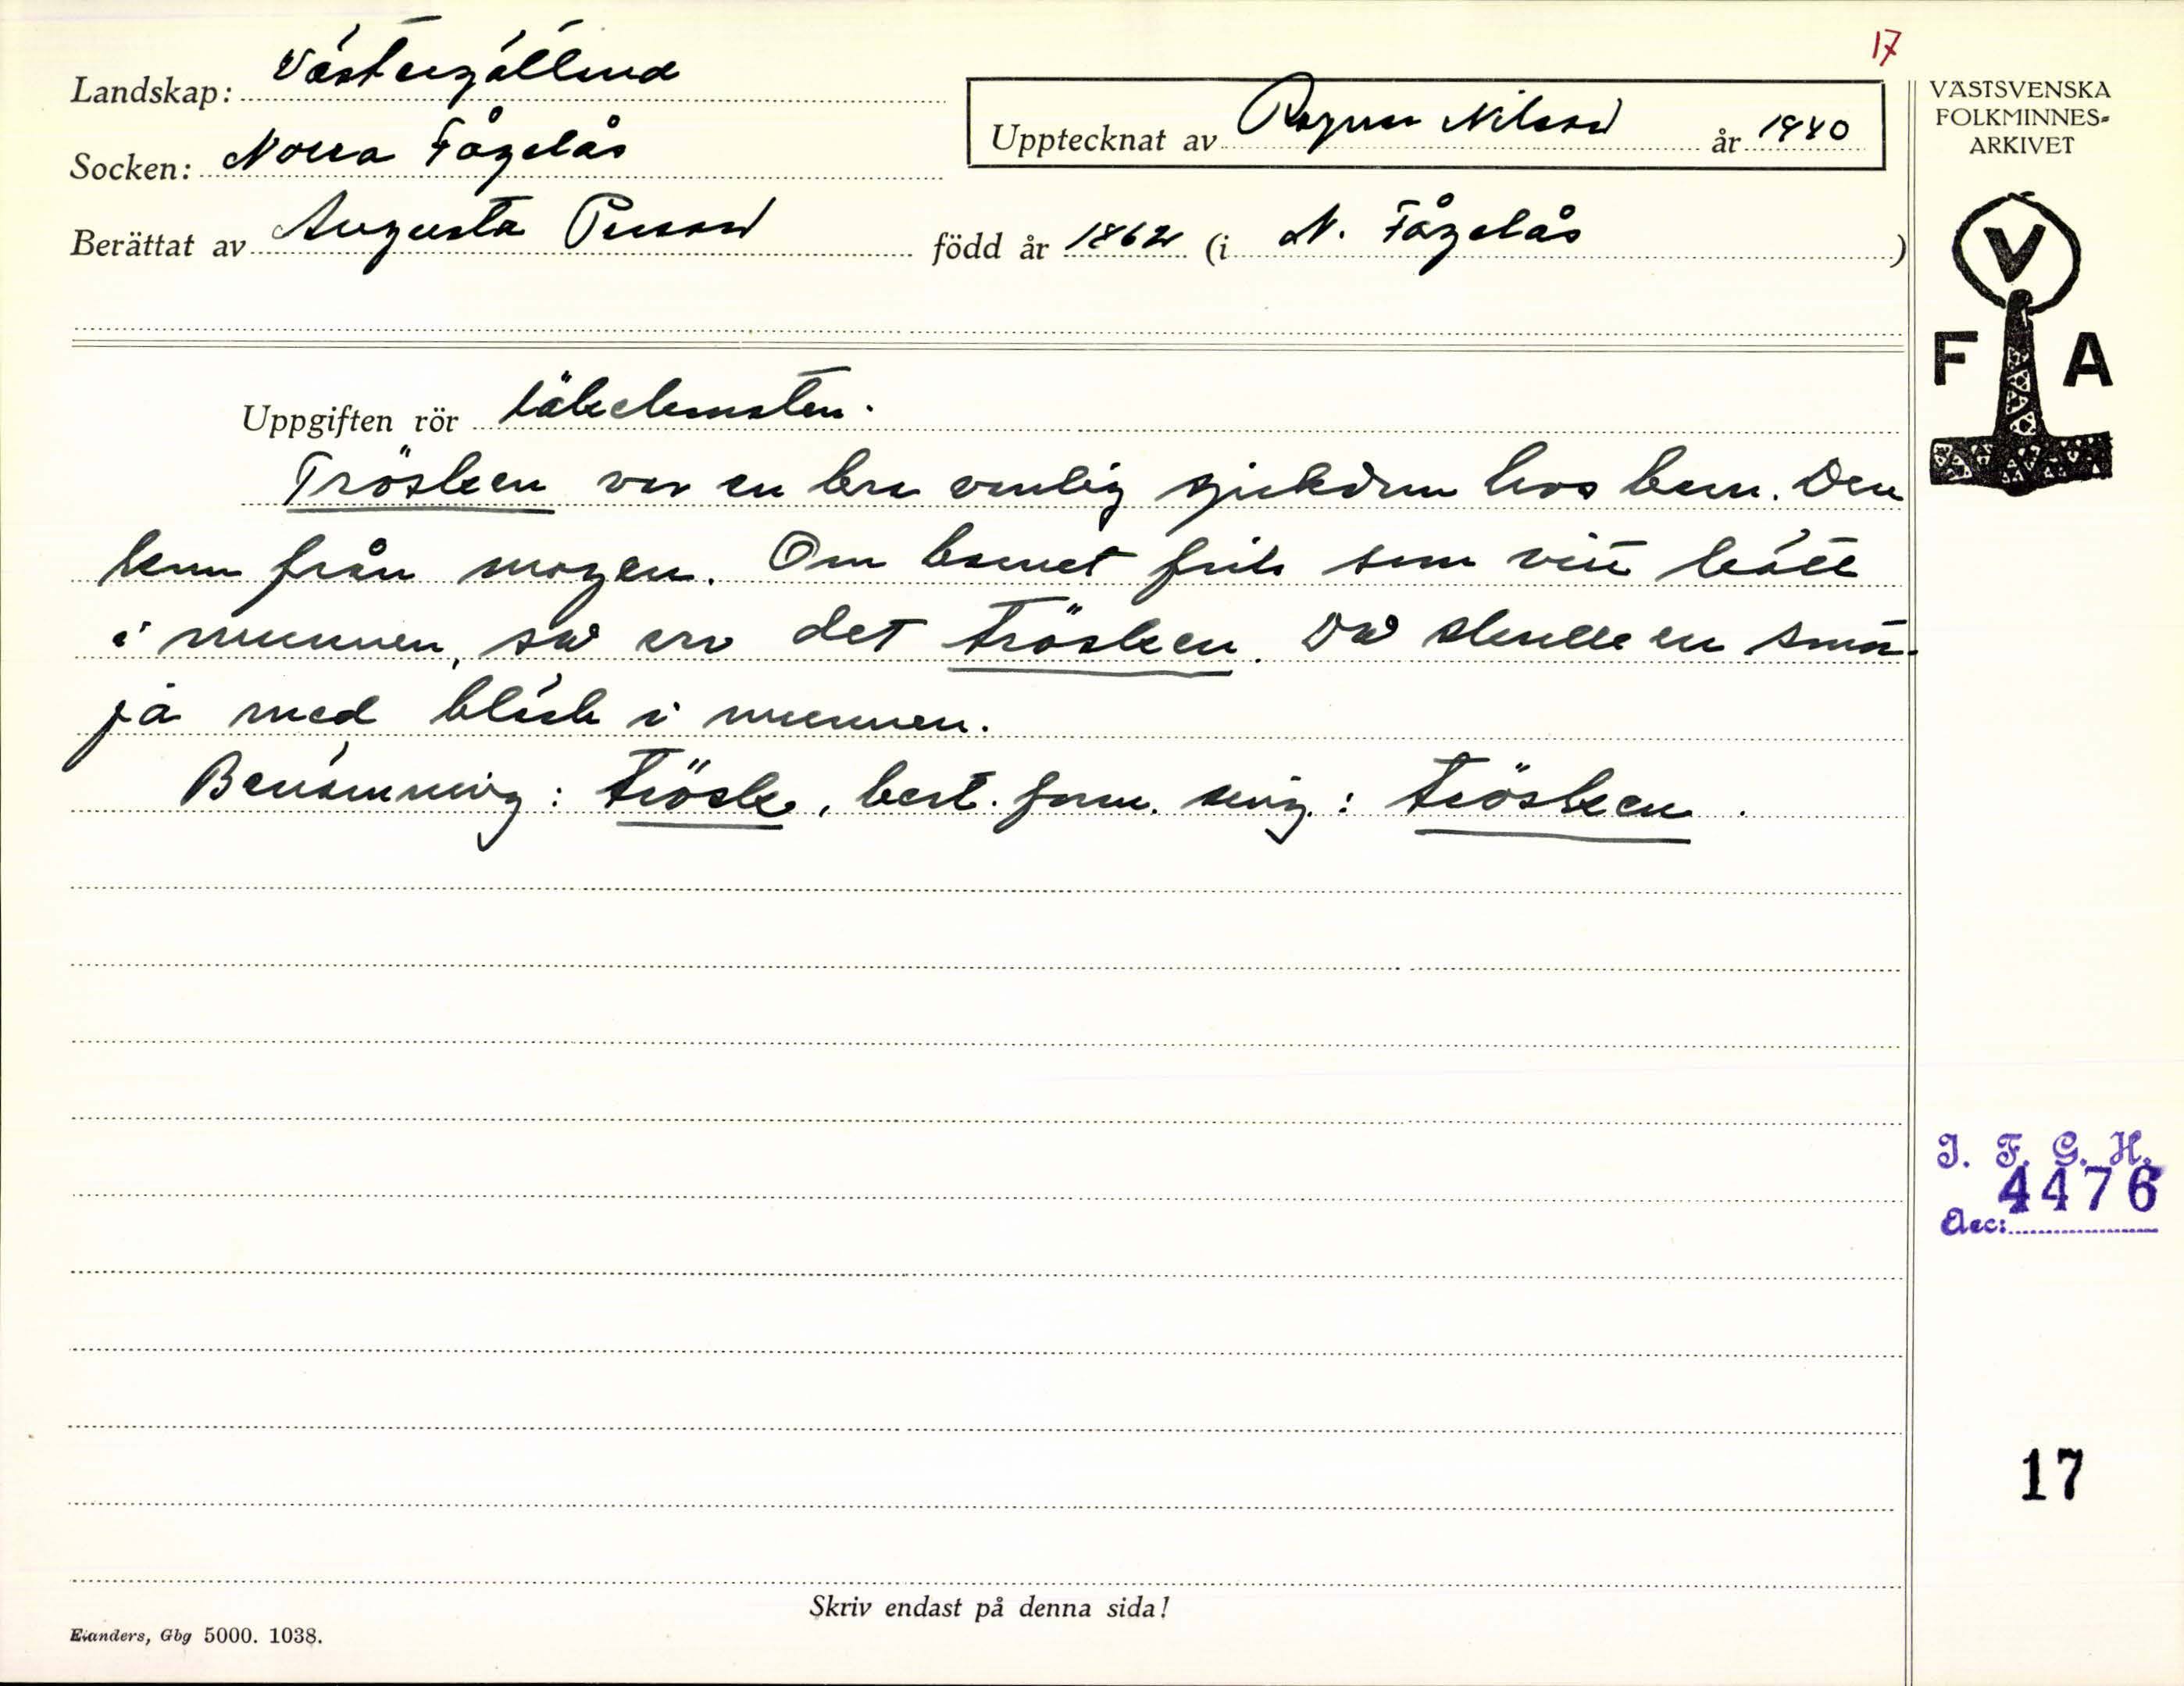 17
Landskap: Västergötland
Socken: Norra Fågelås
Upptecknat av Ragnar Nilsson år 1940
Berättat av Augusta Persson född år 1862 (i N. Fågelås )
VÄSTSVENSKA
FOLKMINNES-
ARKIVET
V
F A
Uppgiften rör läkekonsten.
Trösken var en bra vanlig sjukdom hos barn. Den
kom från magen. Om barnet fick som vitt kött
i munnen, så var det trösken. Då skulle en smör-
ja med bläck i munnen.
Benämning: trösk, best. form. sing.: trösken.
I. F. G. H.
4476
Acc:
17
Skriv endast på denna sida!
Elanders, Gbg 5000. 1038.